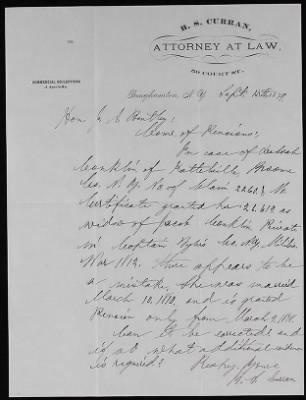 R. S. CURRAN,
ATTORNEY AT LAW,
50 COURT ST.
COMMERCIAL COLLECTIONS
A Specialty.
Binghamton, N. Y. Sept 15th 1879
Hon. J. A. Bentley,
Comr of Pensions,
In case of
Conklin of Kattelville Broome
Co. N. Y. No of Claim No
Certificate granted her 22,612 as
widow of Jacob Conklin Private
in Captain Co. N.Y. Militia
War 1812. There appears to be
a mistake, she was married
March 10, 1810, and is granted
Pension only from March 9, 1878.
Can it be corrected? and
if so what additional evidence
is required?
Respy. Yours
R. S. Curran